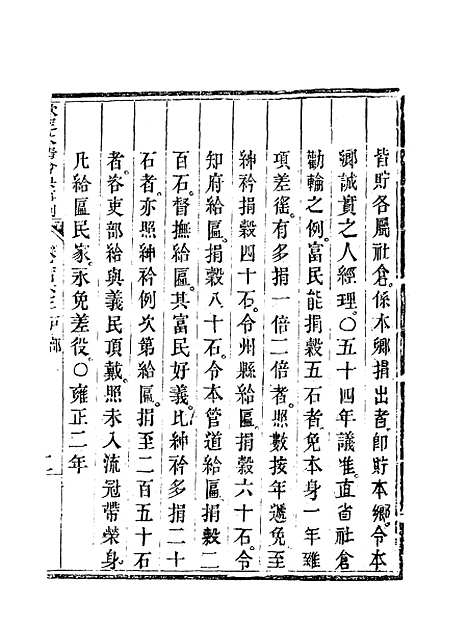 皆貯各屬社倉。係本鄉捐出者。即貯本鄉。令本
鄉誠實之人經理。○五十四年議准。直省社倉
勸輸之例。富民能捐穀五石者。免本身一年雜
項差徭。有多捐一倍二倍者。照數按年遞免。至
紳衿捐穀四十石。令州縣給匾。捐穀六十石。令
知府給匾。捐穀八十石。令本管道給匾。捐穀二
百石。督撫給匾。其富民好義。比紳衿多捐二十
石者。亦照紳衿例次第給匾。捐至二百五十石
者。咨吏部給與義民頂戴。照未入流冠帶榮身。
凡給匾民家。永免差役。○雍正二年
戶部